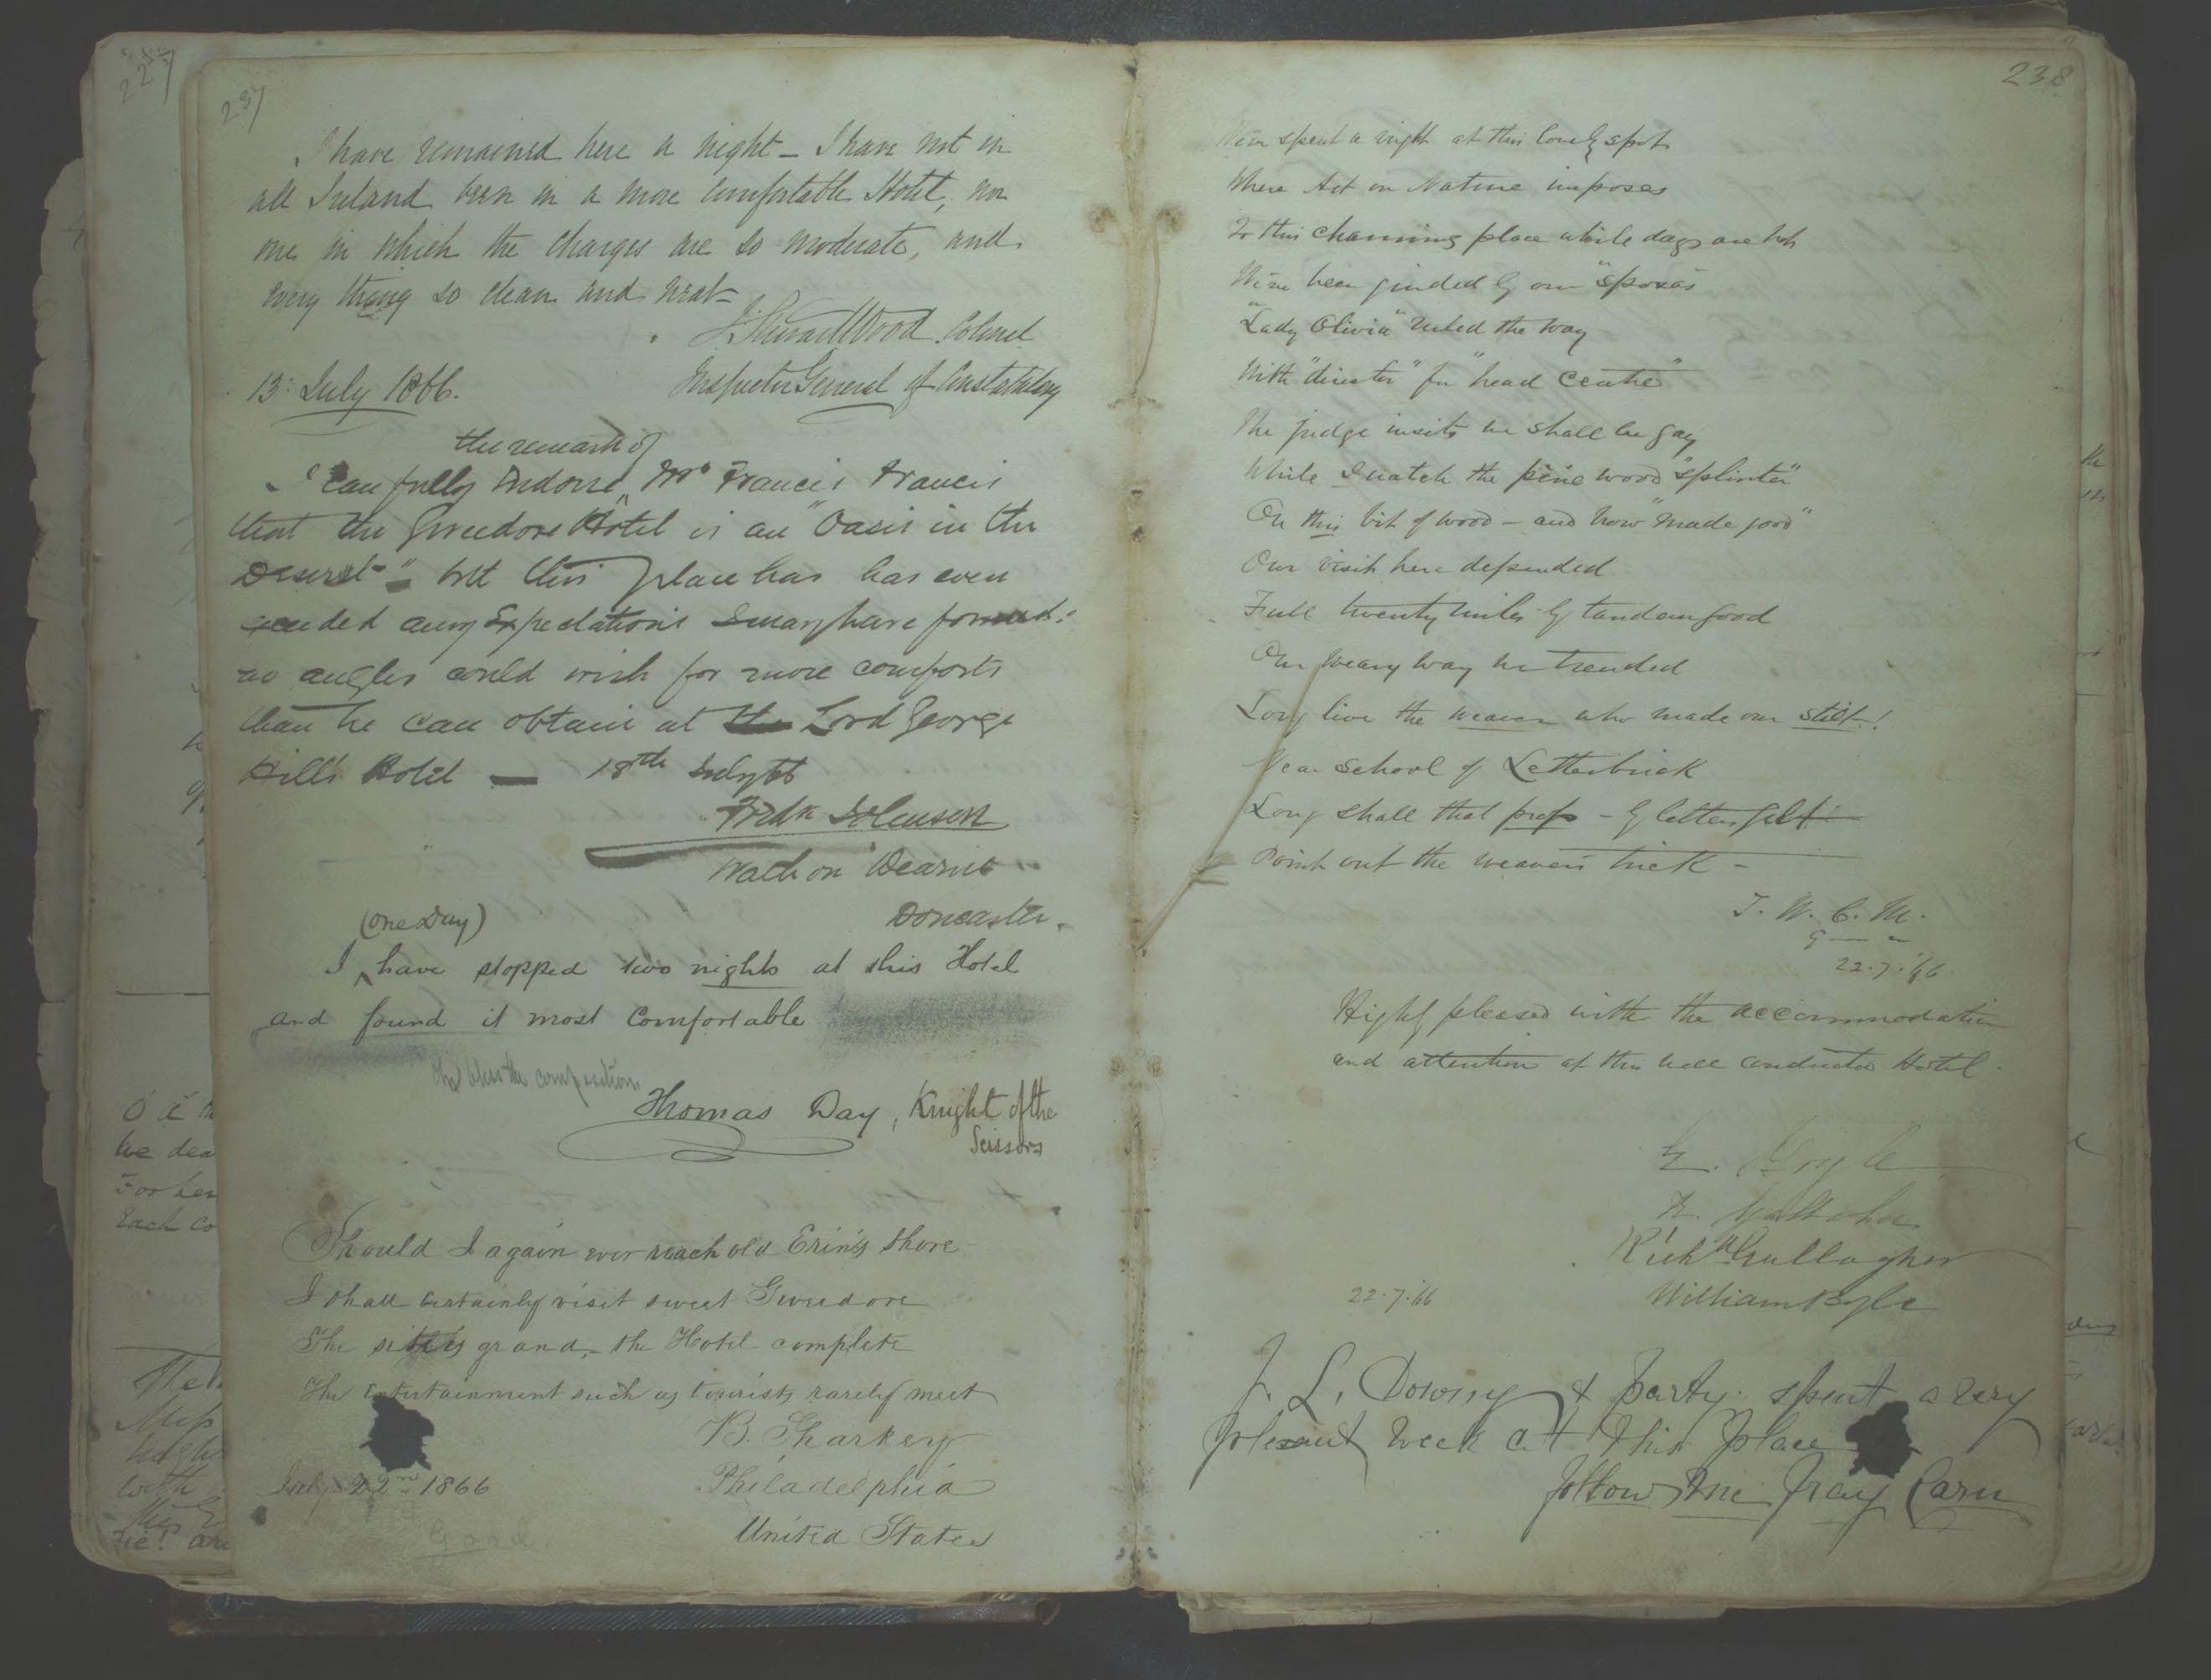 237
I have remained here a night – I have not in
all Ireland been in a more comfortable Hotel, nor
one in which the charges are so moderate, and
every thing so clean and neat –
J. Stewart Wood. Colonel
13: July 1866.
Inspector General of Constabulary
the remark of
I can fully Endorse Mr Francis Francis
that the Gweedore Hotel is an "Oasis in the
Desert" – but this place has has even
ceeded any Expectations I may have formed.
no angler could wish for more comforts
than he can obtain at the Lord George
Hill's Hotel — 18th July 66
Fredk
Wath on Dearne
Doncaster.
(one Day)
I have stopped two nights at this Hotel
and found it most Comfortable
composition
Thomas Day, Knight of the
Scissors
Should I again ever reach old Erin's shore
I shall certainly visit sweet Gweedore
The site is grand, the Hotel complete
The entertainment such as tourists rarely meet
B. Sharkey
July 22nd 1866
Philadelphia
United States
Good
238
We've spent a night at this lovely spot
Where Art on Nature imposes
To this charming place while days are hot
We've been guided by our "sposas"
"Lady Olivia" ruled the way
With "director" for "head centre"
The judge insists we shall be gay
While I watch the pine wood "splinter"
On this bit of wood – and how "made good"
Our visit here depended
Full twenty miles by tandem good
Our weary way we trended
Long live the weaver who made our stilt!
Near School of Letterbrick
Long shall that prop – by letters gilt
Point out the weaver's trick –
T. W. C. M.
22.7.'66
Highly pleased with the accommodation
and attention at this well conducted Hotel.
Boyle
Richd Gallagher
22.7.'66
William Boyle
J. L. Downy & party spent a very
pleasant week at this place
follow me